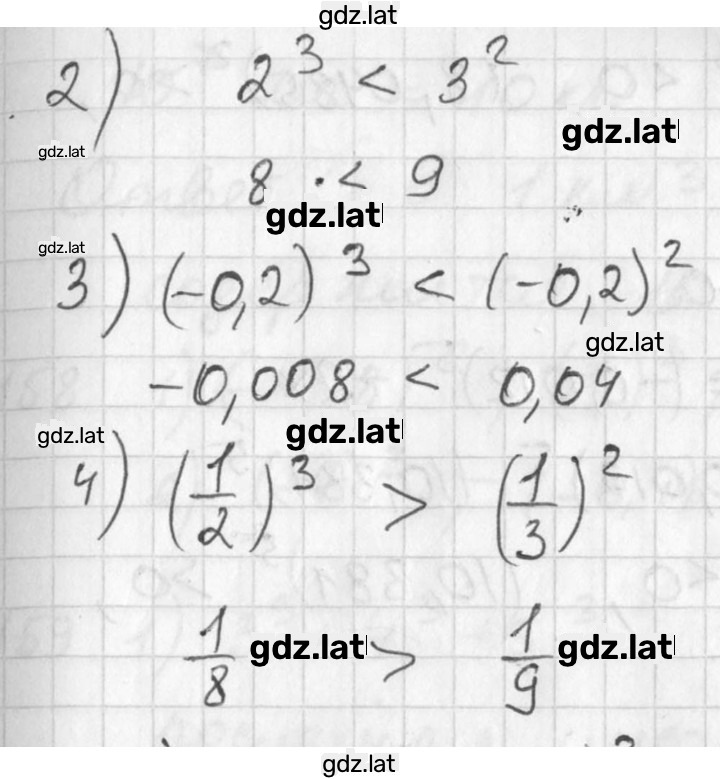 gdz.lat
2) 2³ < 3²
gdz.lat
gdz.lat
8 < 9
gdz.lat
gdz.lat
3) (-0,2)³ < (-0,2)²
gdz.lat
-0,008 < 0,04
gdz.lat
gdz.lat
4) (1/2)³ > (1/3)²
1/8 > 1/9
gdz.lat
gdz.lat
gdz.lat